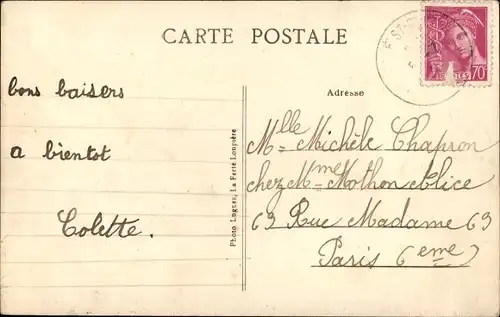 CARTE POSTALE
bons baisers
a bientot
Colette.
Photo Lugues, La Ferté Loupière
Adresse
Mlle Michèle Chapron
chez Mme Mothon Alice
69 Rue Madame 69
Paris 6eme
70